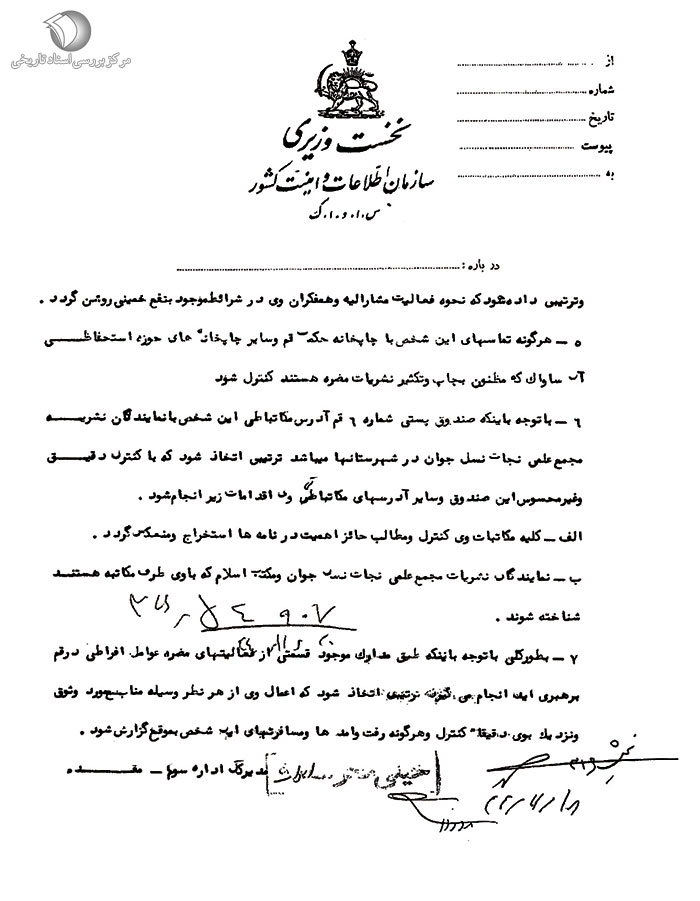 مرکز بررسی اسناد تاریخی
از
شماره
تاریخ
پیوست
به
نخست وزیری
سازمان اطلاعات و امنیت کشور
س.ا.و.ا.ک
درباره:
وترتیبی داده شود که نحوه فعالیت مشارالیه وهمفکران وی در شرائط موجود بنفع خمینی روشن گردد .
۵ – هرگونه تماسهای این شخص با چاپخانه حکمت قم وسایر چاپخانه های حوزه استحفاظی
آن ساواک که مظنون بچاپ وتکثیر نشریات مضره هستند کنترل شود
۶ – باتوجه باینکه صندوق پستی شماره ۶ قم آدرس مکاتباطی این شخص با نمایندگان نشریه
مجمع علمی نجات نسل جوان در شهرستانها میباشد ترتیبی اتخاذ شود که با کنترل دقیق
وغیرمحسوس این صندوق وسایر آدرسهای مکاتباطی وی اقدامات زیر انجام شود .
الف – کلیه مکاتبات وی کنترل ومطالب حائز اهمیت در نامه ها استخراج ومنعکس گردد .
ب – نمایندگان نشریات مجمع علمی نجات نسل جوان ومکتب اسلام که باوی طرف مکاتبه هستند
شناخته شوند .
۷ – بطورکلی باتوجه باینکه طبق مدارک موجود قسمتی از فعالیتهای مضره عوامل افراطی درقم
برهبری این انجام می ترتیبی اتخاذ شود که اعمال وی از هر نظر وسیله منابع مورد وثوق
ونزدیک بوی دقیقا کنترل وهرگونه رفت وامد ها ومسافرتهای این شخص بموقع گزارش شود .
مدیرکل اداره سوم – مقدم